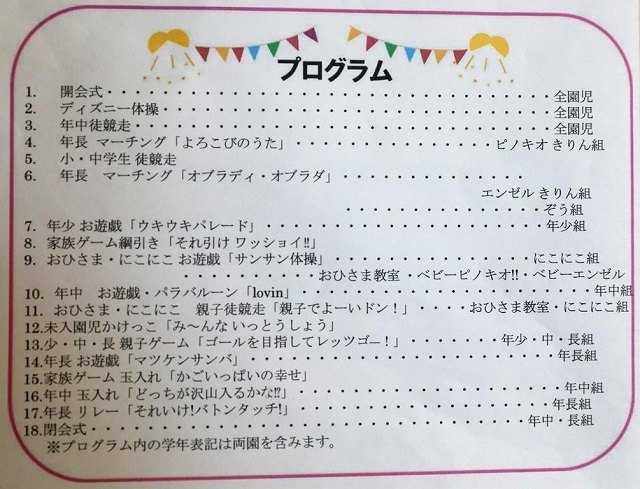 プログラム
1. 開会式・・・・・・・・・・・・・・・・・・・・・・・・・・・・・・全園児
2. ディズニー体操・・・・・・・・・・・・・・・・・・・・・・・・・・全園児
3. 年中徒競走・・・・・・・・・・・・・・・・・・・・・・・・・・・・全園児
4. 年長 マーチング「よろこびのうた」・・・・・・・・・・・・・・ピノキオ きりん組
5. 小・中学生 徒競走
6. 年長 マーチング「オブラディ・オブラダ」・・・・・・・・・・・・
エンゼル きりん組
・・・・・・・・・・・・・ぞう組
7. 年少 お遊戯「ウキウキパレード」・・・・・・・・・・・・・・・・・・年少組
8. 家族ゲーム綱引き「それ引け ワッショイ!!」
9. おひさま・にこにこ お遊戯「サンサン体操」・・・・・・・・・・・・・にこにこ組
・・・・・・・・・おひさま教室・ベビーピノキオ!!・ベビーエンゼル
10. 年中 お遊戯・パラバルーン「lovin」・・・・・・・・・・・・・・・・・・・年中組
11. おひさま・にこにこ 親子徒競走「親子でよーいドン！」・・・・おひさま教室・にこにこ組
12.未入園児かけっこ「み～んな いっとうしょう」
13.少・中・長 親子ゲーム「ゴールを目指してレッツゴー！」・・・・・・・年少・中・長組
14.年長 お遊戯「マツケンサンバ」・・・・・・・・・・・・・・・・・・・・年長組
15.家族ゲーム 玉入れ「かごいっぱいの幸せ」
16.年中 玉入れ「どっちが沢山入るかな!?」・・・・・・・・・・・・・・・・・年中組
17.年長 リレー「それいけ!バトンタッチ!」・・・・・・・・・・・・・・・・年長組
18.閉会式・・・・・・・・・・・・・・・・・・・・・・・・・・・・年中・長組
※プログラム内の学年表記は両園を含みます。